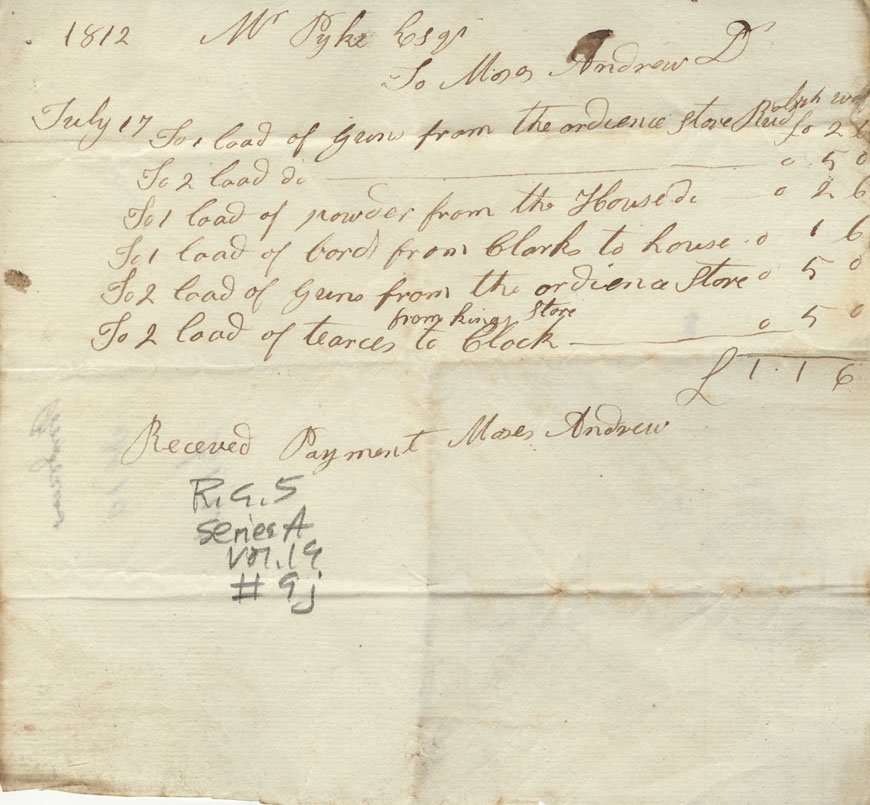 1812 Mr Pyke Esqr
To Moses Andrew Dr
July 17 To 1 load of Guns from the ordience Store £0 2 6
To 2 load do 0 5 0
To 1 load of powder from the House do 0 2 6
To 1 load of bords from Clarks to house 0 1 6
To 2 load of Guns from the ordience Store 0 5 0
from kings Store
To 2 load of tearces to Clock 0 5 0
£ 1 . 1 6
Receved Payment Moses Andrew
R.G.5
Series A
Vol. 19
# 9j